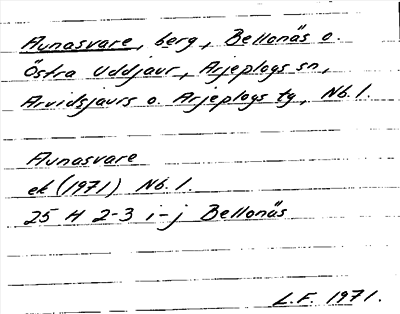 Aunasvare, berg, Bellonäs o.
Östra Uddjaur, Arjeplogs sn,
Arvidsjaurs o. Arjeplogs tg, Nb. l.
Aunasvare
ek (1971) Nb. l.
25 H 2-3 i-j Bellonäs
L.F. 1971.